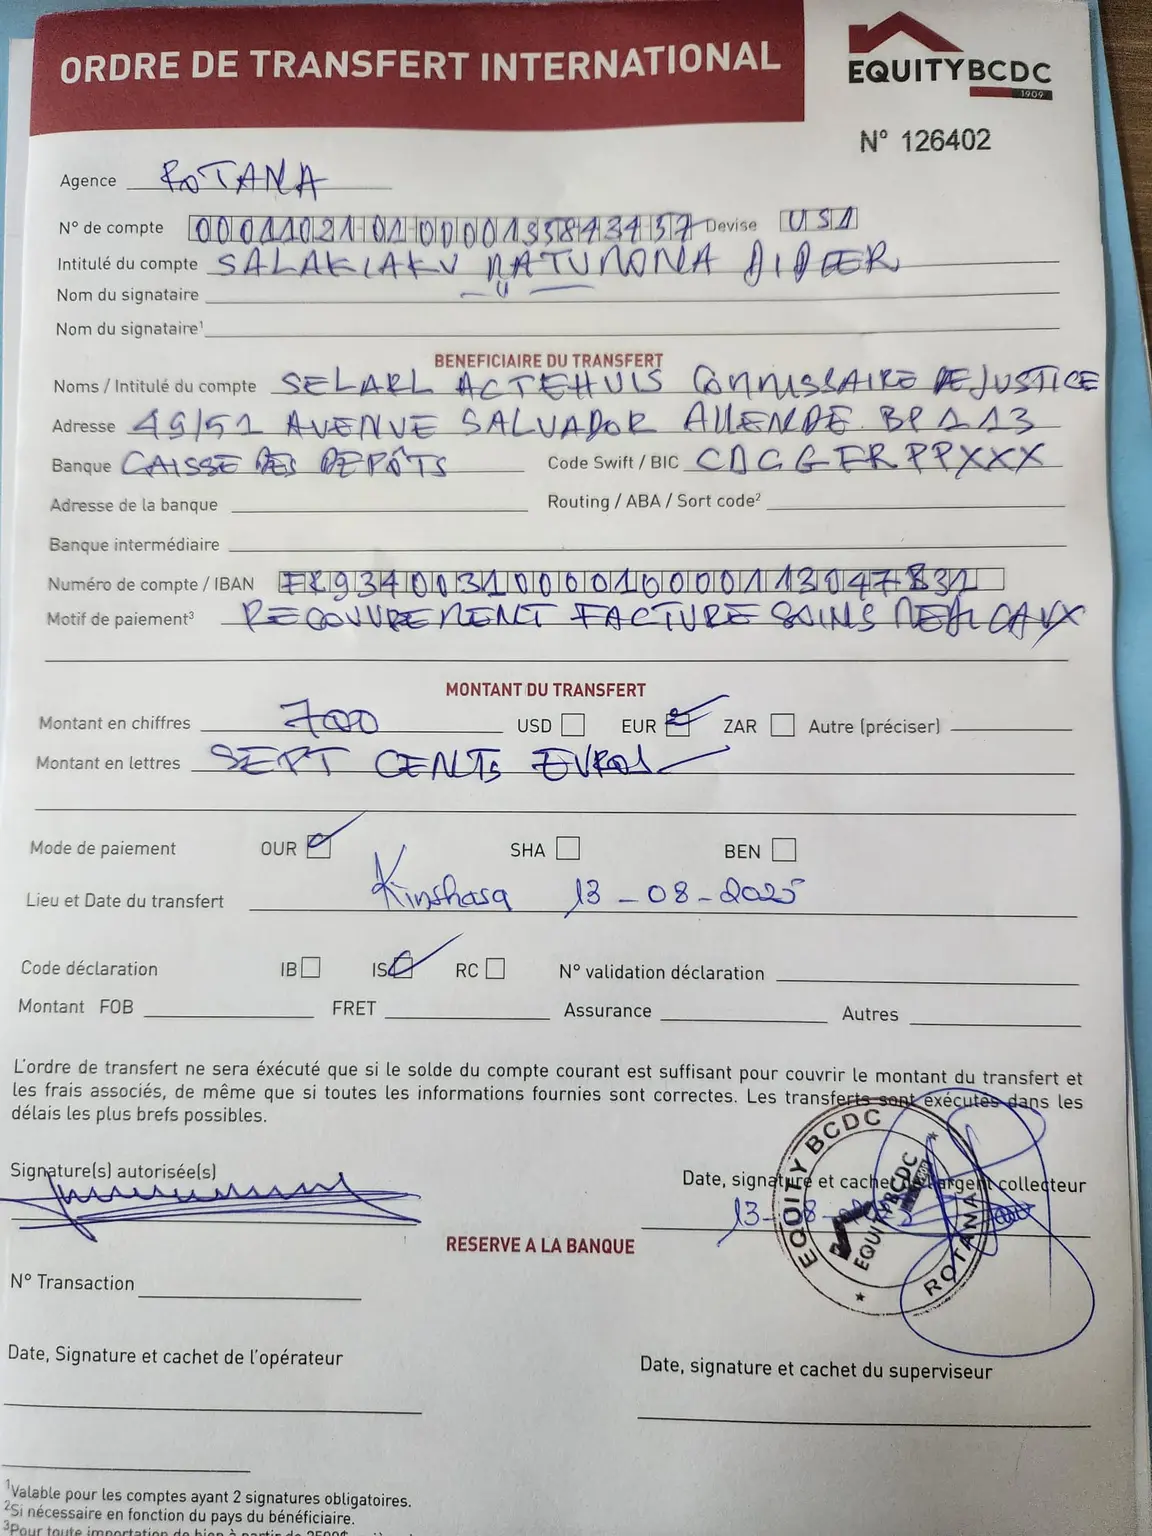 ORDRE DE TRANSFERT INTERNATIONAL
EQUITYBCDC
1909
N° 126402
Agence ROTANA
N° de compte 00011021010000135843457 Devise USD
Intitulé du compte SALAKIAKU MATUMONA DIDIER
Nom du signataire
Nom du signataire¹
BENEFICIAIRE DU TRANSFERT
Noms / Intitulé du compte SELARL ACTEHUIS COMMISSAIRE DE JUSTICE
Adresse 49/51 AVENUE SALVADOR ALLENDE BP 113
Banque CAISSE DES DEPÔTS Code Swift / BIC CDCGFRPPXXX
Adresse de la banque Routing / ABA / Sort code²
Banque intermédiaire
Numéro de compte / IBAN FR9340031000010000113047
Motif de paiement³ RECOUVREMENT FACTURE SOINS MEDICAUX
MONTANT DU TRANSFERT
Montant en chiffres 700 USD EUR ZAR Autre (préciser)
Montant en lettres SEPT CENTS EUROS
Mode de paiement OUR SHA BEN
Lieu et Date du transfert Kinshasa 13-08-2025
Code déclaration IB IS RC N° validation déclaration
Montant FOB FRET Assurance Autres
L'ordre de transfert ne sera éxécuté que si le solde du compte courant est suffisant pour couvrir le montant du transfert et
les frais associés, de même que si toutes les informations fournies sont correctes. Les transferts sont exécutés dans les
délais les plus brefs possibles.
Signature(s) autorisée(s)
Date, signature et cachet de l'argent collecteur
13-8-2025
EQUITY BCDC
EQUITYBCDC
ROTANA
RESERVE A LA BANQUE
N° Transaction
Date, Signature et cachet de l'opérateur
Date, signature et cachet du superviseur
¹Valable pour les comptes ayant 2 signatures obligatoires.
²Si nécessaire en fonction du pays du bénéficiaire.
³Pour toute importation de bien à partir de 2500$